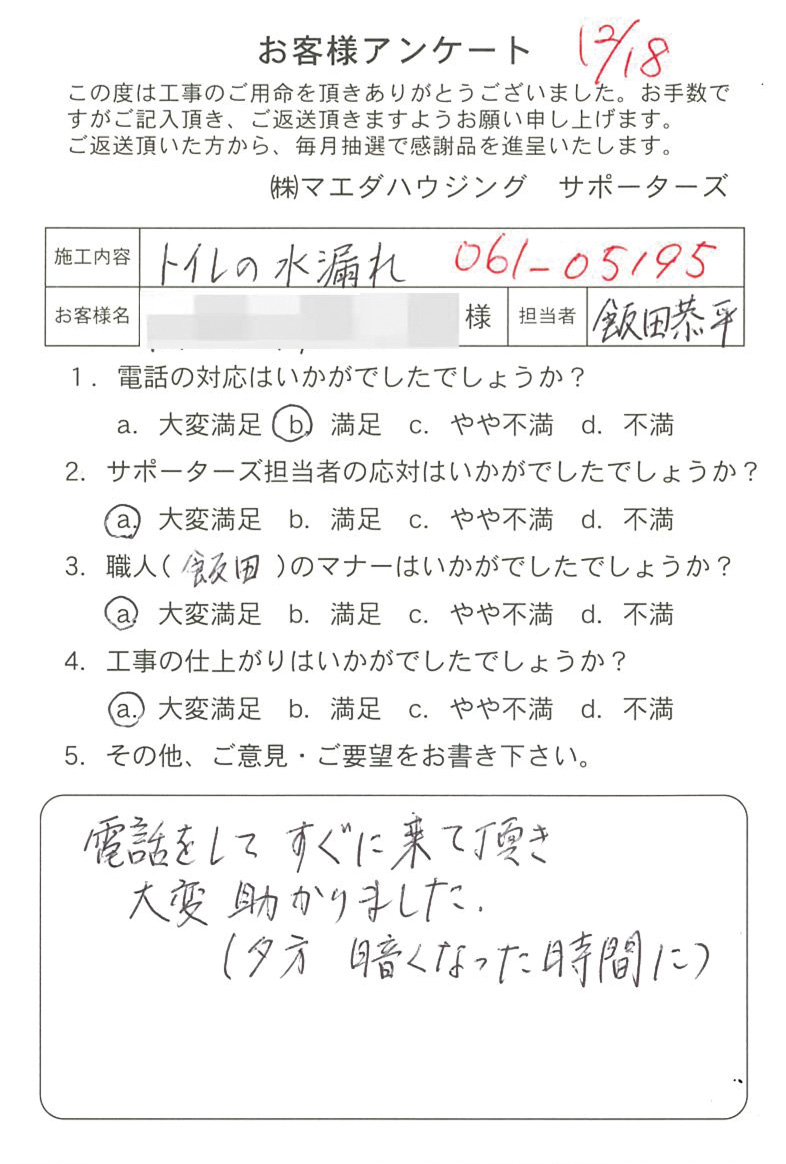 お客様アンケート 12/18
この度は工事のご用命を頂きありがとうございました。お手数で
すがご記入頂き、ご返送頂きますようお願い申し上げます。
ご返送頂いた方から、毎月抽選で感謝品を進呈いたします。
㈱マエダハウジング　サポーターズ
施工内容 トイレの水漏れ 061-05195
お客様名 様 担当者 飯田恭平
1. 電話の対応はいかがでしたでしょうか？
a. 大変満足 b. 満足 c. やや不満 d. 不満
2. サポーターズ担当者の応対はいかがでしたでしょうか？
a. 大変満足 b. 満足 c. やや不満 d. 不満
3. 職人(飯田)のマナーはいかがでしたでしょうか？
a. 大変満足 b. 満足 c. やや不満 d. 不満
4. 工事の仕上がりはいかがでしたでしょうか？
a. 大変満足 b. 満足 c. やや不満 d. 不満
5. その他、ご意見・ご要望をお書き下さい。
電話をして すぐに来て頂き
大変 助かりました.
(夕方 暗くなった時間に)